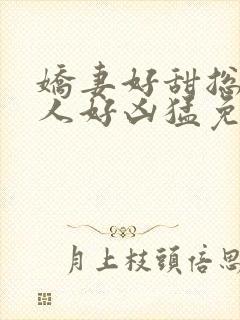 嬌妻好甜總
人好凶猛免
月上枝頭倍思